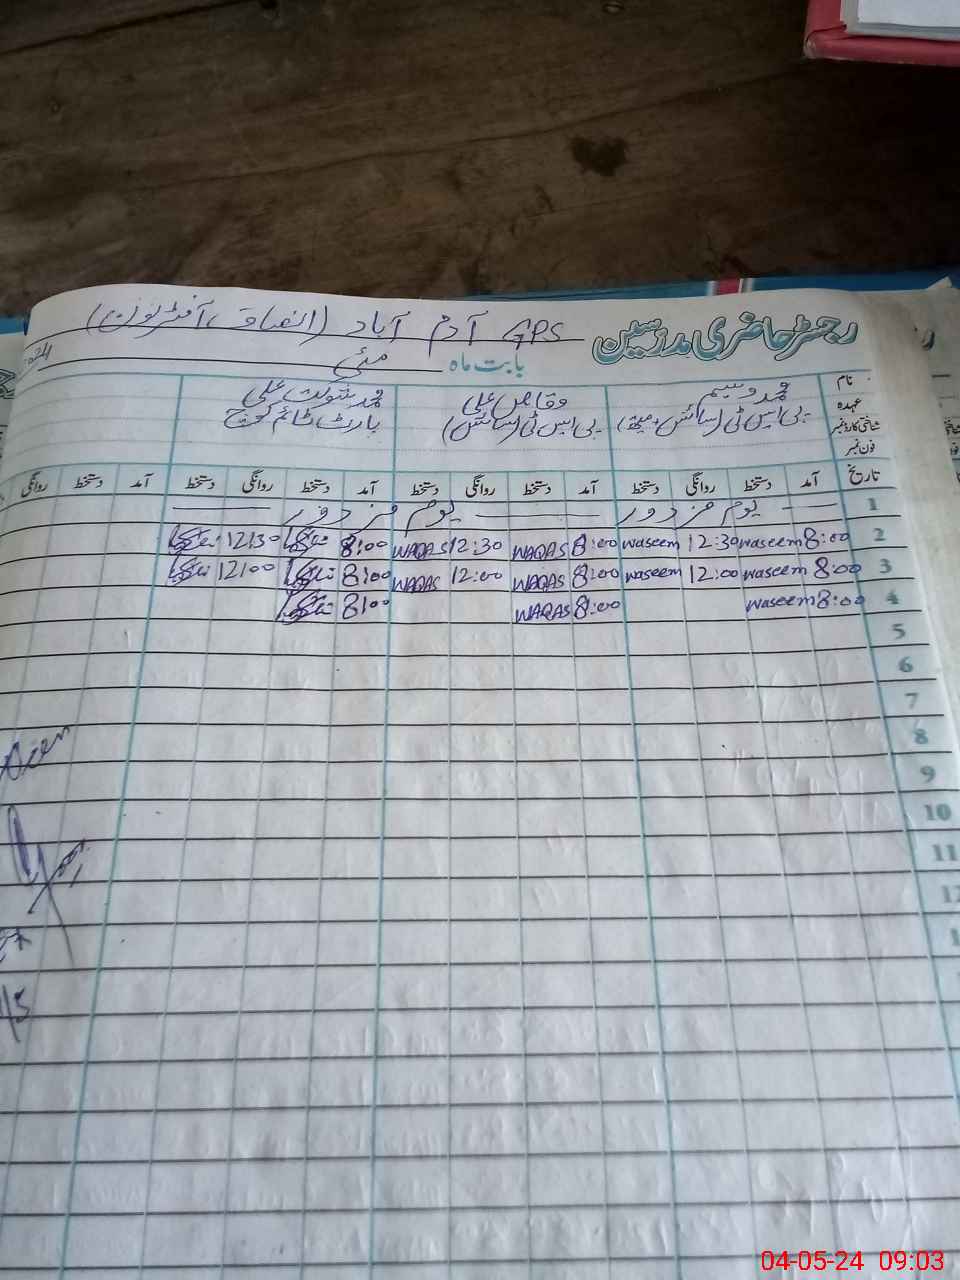 رجسٹر حاضری مدرسین GPS آدم آباد (انصاف آفٹرنون)
بابت ماہ مئی 2024
نام محمد وسیم وقاص علی محمد شوکت علی
عہدہ پی ایس ٹی (سائنس، میتھ) پی ایس ٹی (سائنس) پارٹ ٹائم کوچ
شناختی کارڈ نمبر
فون نمبر
تاریخ آمد دستخط روانگی دستخط آمد دستخط روانگی دستخط آمد دستخط روانگی دستخط آمد دستخط روانگی
1 یوم مزدور یوم مزدور
2 8:00 waseem 12:30 waseem 8:00 WAQAS 12:30 WAQAS 8:00 12:30
3 8:00 waseem 12:00 waseem 8:00 WAQAS 12:00 WAQAS 8:00 12:00
4 8:00 waseem 8:00 WAQAS 8:00
5
6
7
8
9
10
11
12
04-05-24 09:03